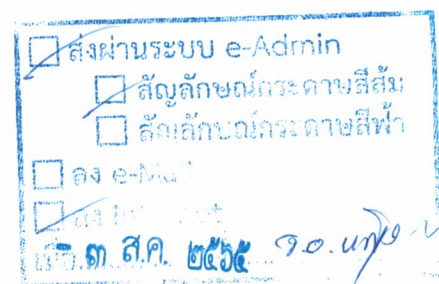 ส่งผ่านระบบ e-Admin
สัญลักษณ์กระดาษสีส้ม
สัญลักษณ์กระดาษสีฟ้า
ลง e-Mail
ลง
๓ ส.ค. ๒๕๖๕ จ.อ.